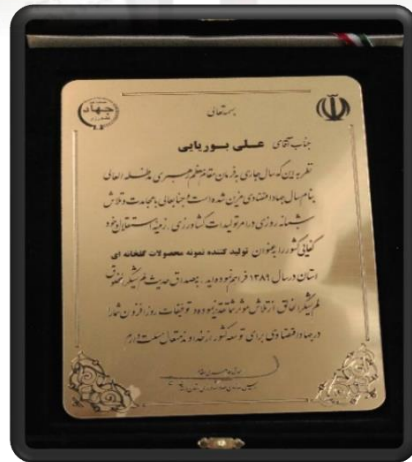 جهاد
بسمه تعالی
جناب آقای علی بوریایی
نظر به این که سال جاری به فرمان مقام معظم رهبری مدظله العالی
بنام سال جهاد اقتصادی مزین شده است جنابعالی با مجاهدت و تلاش
شبانه روزی در امر تولیدات کشاورزی، زمینه استقلال و خود
کفایی کشور را به عنوان تولید کننده نمونه محصولات گلخانه ای
استان در سال ۱۳۸۹ فراهم نموده اید، به مصداق حدیث لم یشکر المخلوق
لم یشکر الخالق از تلاش موثر شما تقدیر نموده و توفیقات روز افزون شما را
در جهاد اقتصادی برای توسعه کشور از خداوند متعال مسئلت دارم